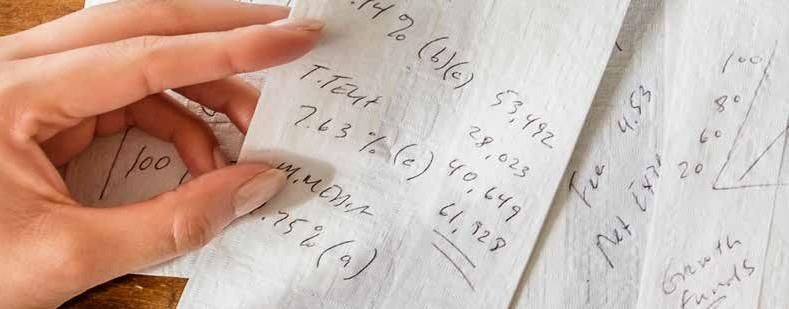 .14% (b)(c)
T.Text
7.63% (c)
M.Media
.75% (a)
53,492
28,023
40,649
61,928
100
Fee 4.53
Net
100
80
60
20
Growth
Funds